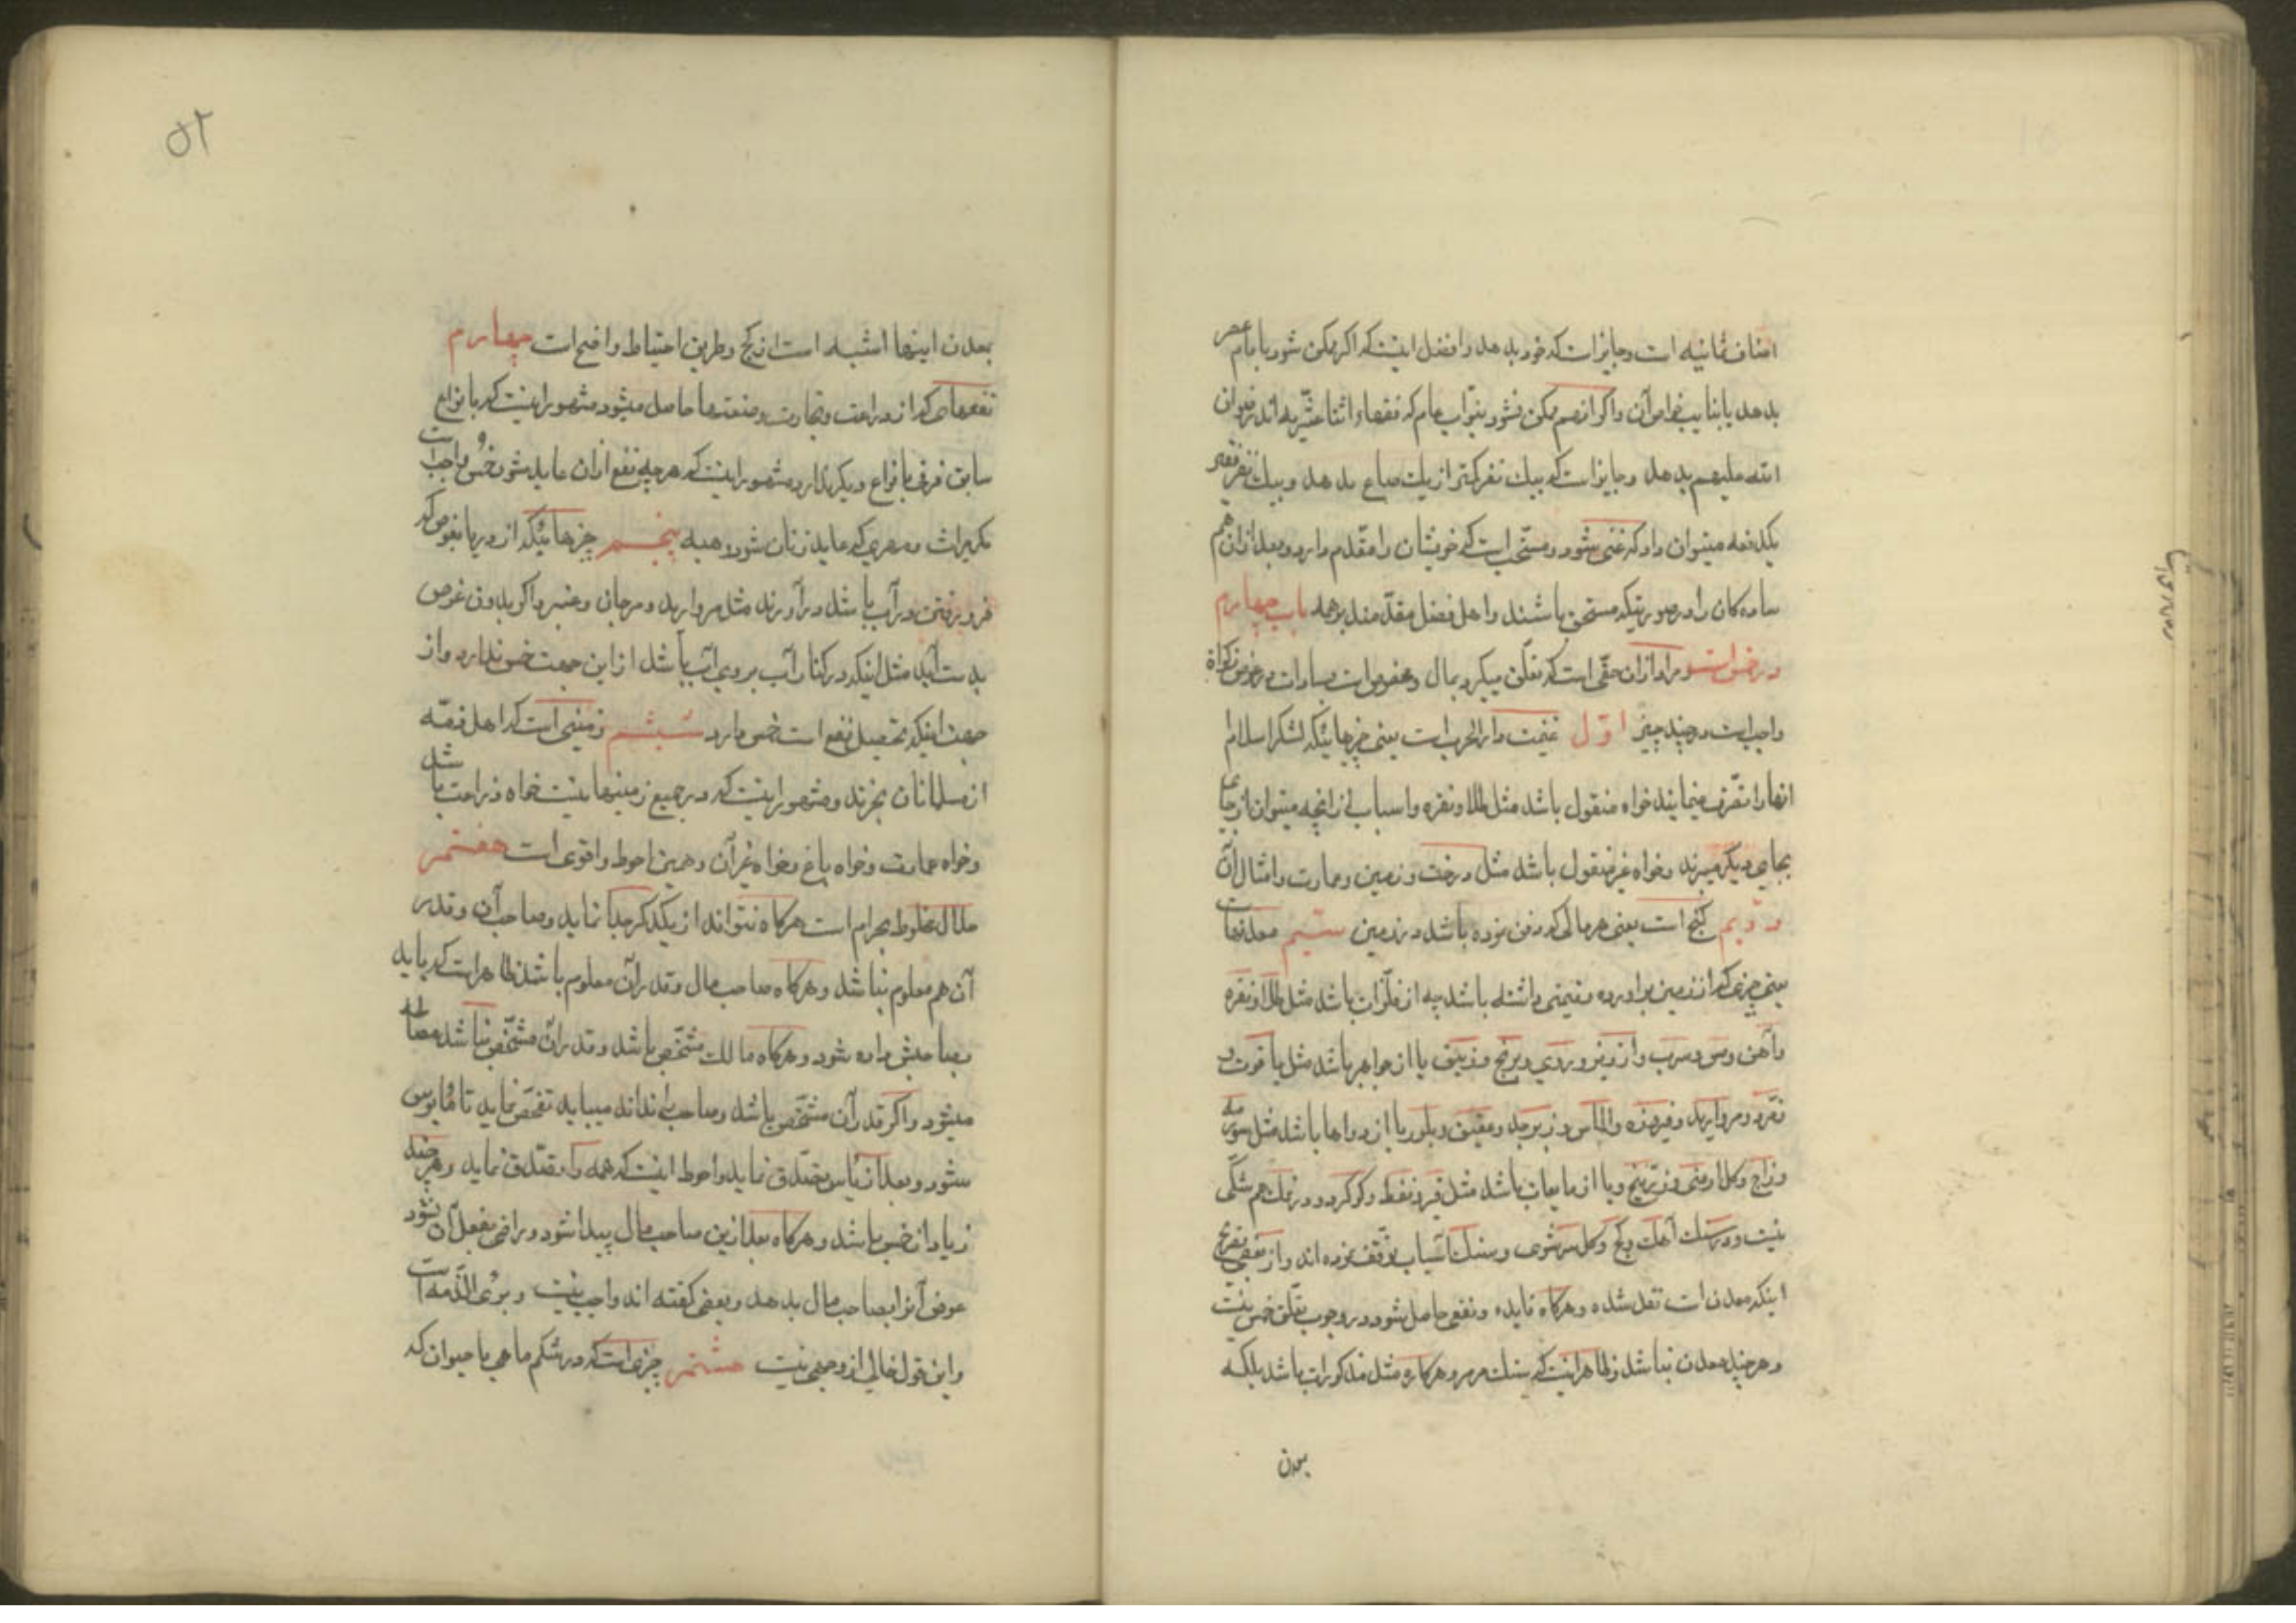 اصناف ثمانیه است و جایز است که خود بدهد و افضل اینست که اگر ممکن شود بامام عصر
بدهد یا بنایب خواص آن و اگر آنهم ممکن نشود بنواب عام که فقهاء اثنا عشریه اند رضوان
الله علیهم بدهد و جایز است که بیک نفر کمتر از یک صاع بدهد و بیک نفر فقیر
یکدفعه میتوان داد که غنی شود و مستحب است که خویشان را مقدم دارد و بعد از آن هم
ساده کان را در صورتیکه مستحق باشند و اهل فضل مقدمند بر همه باب چهارم
در خمس است و مراد از آن حقی است که تعلق میگیرد بمال و مخصوص است بسادات در عوض زکواة
واجب است در چند چیز اول غنیمت دار الحرب است یعنی چیزهائیکه لشکر اسلام
انها را تصرف مینمایند خواه منقول باشد مثل طلا و نقره و اسباب از آنچه میتوان از جای
بجای دیگر میبرند و خواه غیر منقول باشد مثل درخت و زمین و عمارت و امثال آن
دویم گنج است یعنی هر مالی که دفن نموده باشد در زمین سیم معدنهاست
یعنی چیزی که از زمین بر اورده و قیمتی داشته باشد چه از فلزات باشد مثل طلا و نقره
و آهن و مس و سرب و ارزیز و روی و برنج و زیبق یا از جواهر باشد مثل یاقوت و
زمرد و مروارید و فیروزه و الماس و زبرجد و عقیق و بلور یا از دواها باشد مثل سورمه
و زاج و کل ارمنی و زرنیخ و یا از مایعات باشد مثل قیر و نفط و کوکرد و در نمک هم شکی
نیست و در سنک آهک و کچ و کل سرشوی و سنک آسیاب توقف نموده اند و از بعضی تصریح
اینکه معدن است نقل شده و هرکاه فایده و نفعی حاصل شود در وجوب تعلق خمس نیست
و هر چند معدن نباشد و ظاهر اینست که سنک مرمر و هرکاره مثل مذکورات باشد بلکه
بعدن
۵۲
بعدن اینها اشبه است از کچ و طریق احتیاط واضح است چهارم
نفعهای که از زراعت و تجارت و صنعتها حاصل میشود مشهور اینست که بانواع
سابق فرقی بانواع دیگر ندارد مشهور اینست که هر چه نفع از آن عاید شود خمس واجب است
مکر میراث و مهری که عاید زنان شود و هبه پنجم چیزهائیکه از دریا بغوص که
فرو رفتن در آب باشد در آورند مثل مروارید و مرجان و عنبر و اگر بدون غوص
بدست آید مثل اینکه در کنار آب بر روی آب باشد از این جهت خمس ندارد و از
جهت اینکه تحصیل نفع است خمس دارد ششم زمینی است که اهل ذمه
از مسلمانان بخرند و مشهور اینست که در جمیع زمینها نیست خواه زراعت باشد
و خواه عمارت و خواه باغ و خواه غیر آن و همین احوط و اقوی است هفتم
حلال مخلوط بحرام است هرکاه نتواند از یکدکر جدا نماید و صاحب آن و قدر
آن هم معلوم نباشد و هرکاه صاحب مال و قدر آن معلوم باشد ظاهر است که باید
بصاحبش داده شود و هرکاه مالک مشخص باشد و قدر آن مشخص نباشد مصالحه
میشود و اگر قدر آن مشخص باشد و صاحب را نداند میباید تفحص نماید تا مایوس
شود و بعد از یاس تصدق نماید و احوط اینست که همه را تصدق نماید و هر چند
زیاد از خمس باشد و هرکاه بعد ازین صاحب مال پیدا شود و راضی بفعل آن نشود
عوض آنرا بصاحب مال بدهد و بعضی کفته اند واجب نیست و برئ الذمه است
و این قول خالی از وجهی نیست هشتم چیزی است که در شکم ماهی یا حیوان که